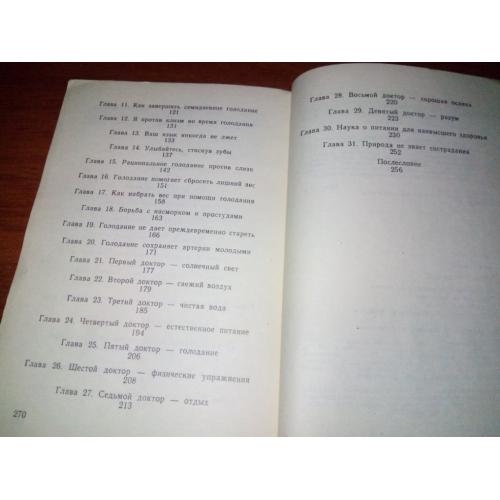 Глава 11. Как завершить семидневное голодание
121
Глава 12. Я против клизм во время голодания
131
Глава 13. Ваш язык никогда не лжет
133
Глава 14. Улыбайтесь, стиснув зубы
137
Глава 15. Рациональное голодание против слизи
142
Глава 16. Голодание помогает сбросить лишний вес
151
Глава 17. Как набрать вес при помощи голодания
158
Глава 18. Борьба с насморком и простудами
163
Глава 19. Голодание не дает преждевременно стареть
166
Глава 20. Голодание сохраняет артерии молодыми
171
Глава 21. Первый доктор — солнечный свет
177
Глава 22. Второй доктор — свежий воздух
179
Глава 23. Третий доктор — чистая вода
185
Глава 24. Четвертый доктор — естественное питание
194
Глава 25. Пятый доктор — голодание
206
Глава 26. Шестой доктор — физические упражнения
208
Глава 27. Седьмой доктор — отдых
213
270
Глава 28. Восьмой доктор — хорошая осанка
220
Глава 29. Девятый доктор — разум
223
Глава 30. Наука о питании для наивысшего здоровья
230
Глава 31. Природа не знает сострадания
252
Послесловие
256